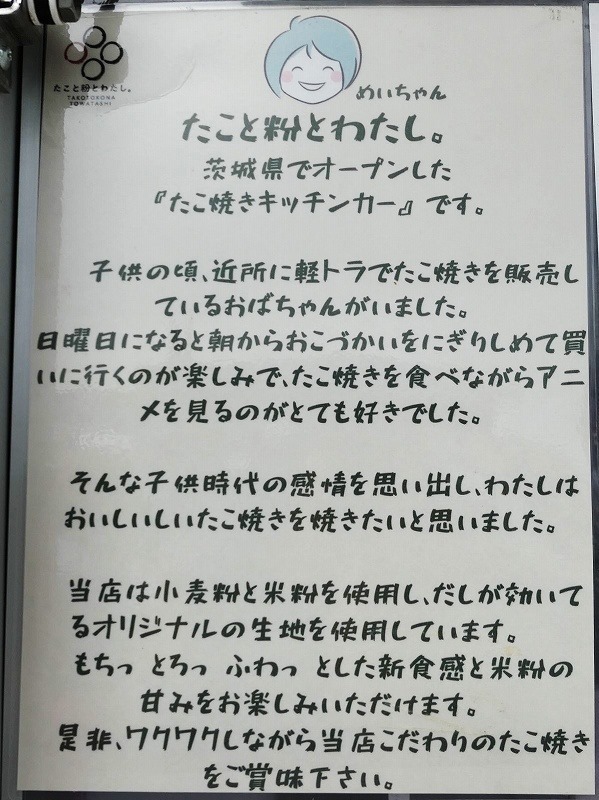 たこと粉とわたし。
TAKOTOKONA
TOWATASHI
めいちゃん
たこと粉とわたし。
茨城県でオープンした
『たこ焼きキッチンカー』です。
子供の頃、近所に軽トラでたこ焼きを販売し
ているおばちゃんがいました。
日曜日になると朝からおこづかいをにぎりしめて買
いに行くのが楽しみで、たこ焼きを食べながらアニ
メを見るのがとても好きでした。
そんな子供時代の感情を思い出し、わたしは
おいしいしいたこ焼きを焼きたいと思いました。
当店は小麦粉と米粉を使用し、だしが効いて
るオリジナルの生地を使用しています。
もちっ とろっ ふわっ とした新食感と米粉の
甘みをお楽しみいただけます。
是非、ワクワクしながら当店こだわりのたこ焼き
をご賞味下さい。